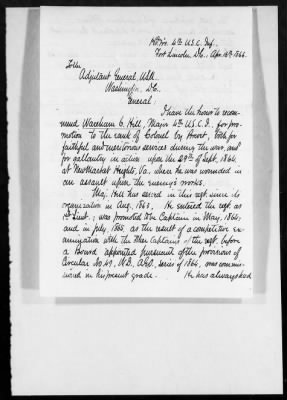 Hd. Qrs. 4th U.S.C. Inf.
Fort Lincoln, D.C., Apr. 16th 1866.
To the
Adjutant General, U.S.A.
Washington, D.C.
General:
I have the honor to recom-
mend Wareham C. Hill, Major 4th U.S.C.I., for pro-
motion to the rank of Colonel by Brevet, both for
faithful and meritorious services during the war, and
for gallantry in action upon the 29th of Sept. 1864,
at New Market Heights, Va., where he was wounded in
an assault upon the enemy's works.
Maj. Hill has served in this regt. since its
organization in Aug. 1863. He entered the regt. as
1st Lieut.; was promoted to be Captain in May, 1864,
and in July, 1865, as the result of a competitive ex-
amination with the other Captains of the regt. before
a Board appointed pursuant to the provisions of
Circular No. 49, W.D. A.G.O. series of 1864, was commis-
sioned in his present grade. He has always had